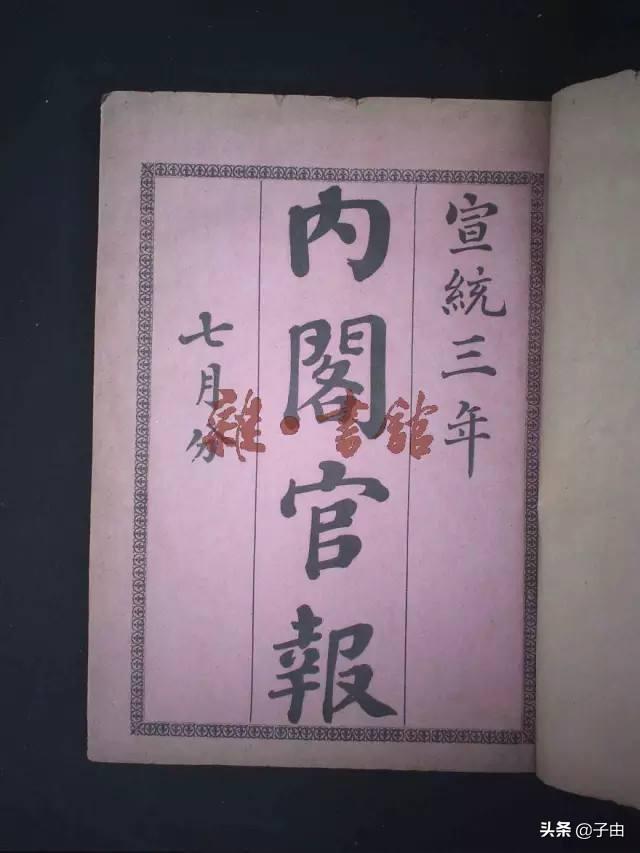 宣統三年
內閣官報
七月分
雜·書館
头条 @子由